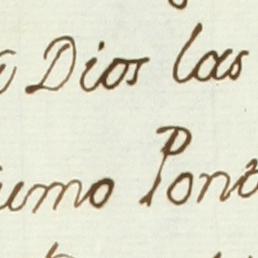 Dios las
umo Pont